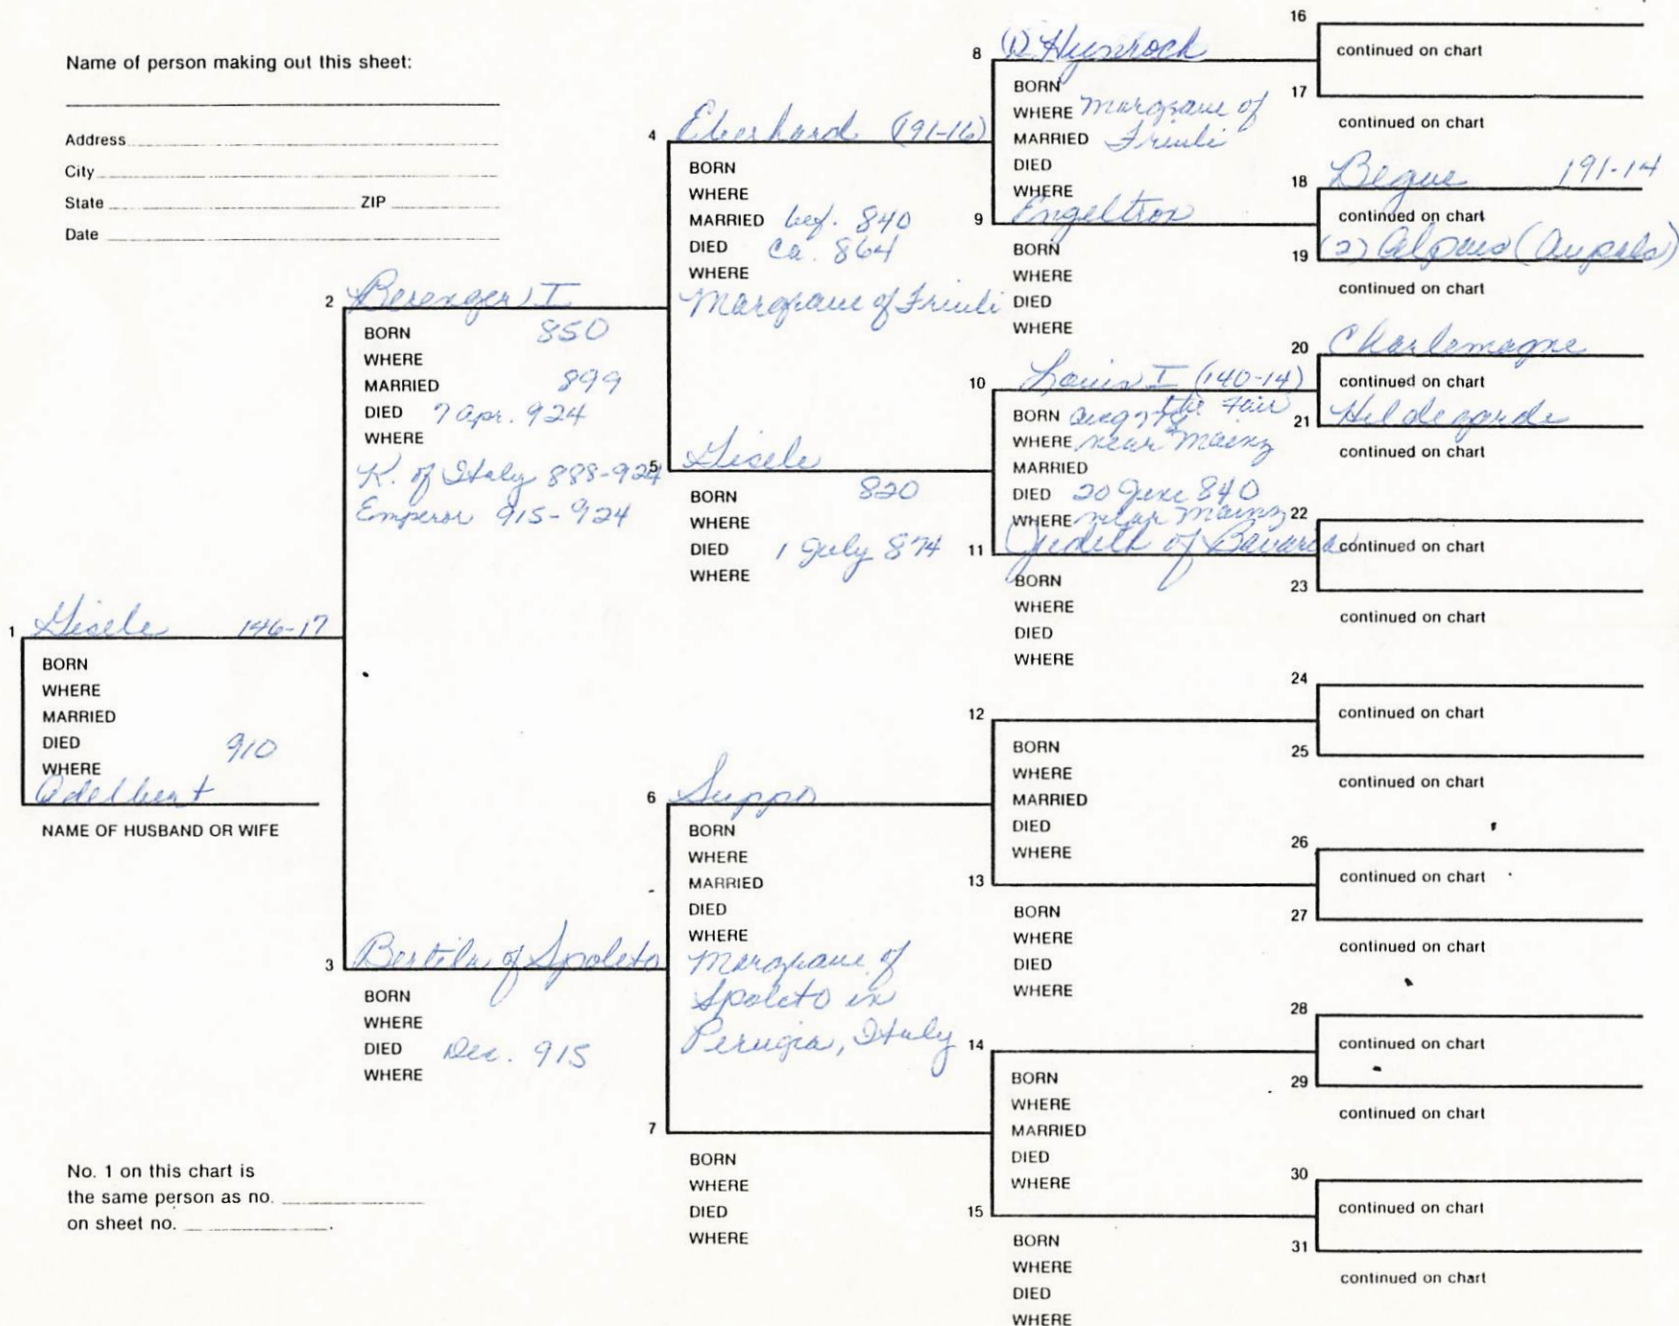 Name of person making out this sheet:
Address
City
State ZIP
Date
1 Gisele 146-17
BORN
WHERE
MARRIED
DIED 910
WHERE
Adelbert
NAME OF HUSBAND OR WIFE
No. 1 on this chart is
the same person as no.
on sheet no. .
2 Berenger I
BORN 850
WHERE
MARRIED 899
DIED 7 Apr. 924
WHERE
K. of Italy 888-924
Emperor 915-924
3 Bertila of Spoleto
BORN
WHERE
DIED Dec. 915
WHERE
4 Eberhard (191-16)
BORN
WHERE
MARRIED bef. 840
DIED ca. 864
WHERE
Margrave of Friuli
5 Gisele
BORN 820
WHERE
DIED 1 July 874
WHERE
6 Suppo
BORN
WHERE
MARRIED
DIED
WHERE
Margrave of
Spoleto in
Perugia, Italy
7
BORN
WHERE
DIED
WHERE
8 (1)
BORN
WHERE Margrave of
MARRIED Friuli
DIED
WHERE
9 Engeltron
BORN
WHERE
DIED
WHERE
10 Louis I (140-14)
the Fair
BORN Aug
WHERE near Mainz
MARRIED
DIED 20 June 840
WHERE near Mainz
11 Judith of Bavaria
BORN
WHERE
DIED
WHERE
12
BORN
WHERE
MARRIED
DIED
WHERE
13
BORN
WHERE
DIED
WHERE
14
BORN
WHERE
MARRIED
DIED
WHERE
15
BORN
WHERE
DIED
WHERE
16
continued on chart
17
continued on chart
18 Begue 191-14
continued on chart
19 (2) Alpais
continued on chart
20 Charlemagne
continued on chart
21 Hildegarde
continued on chart
22
continued on chart
23
continued on chart
24
continued on chart
25
continued on chart
26
continued on chart
27
continued on chart
28
continued on chart
29
continued on chart
30
continued on chart
31
continued on chart